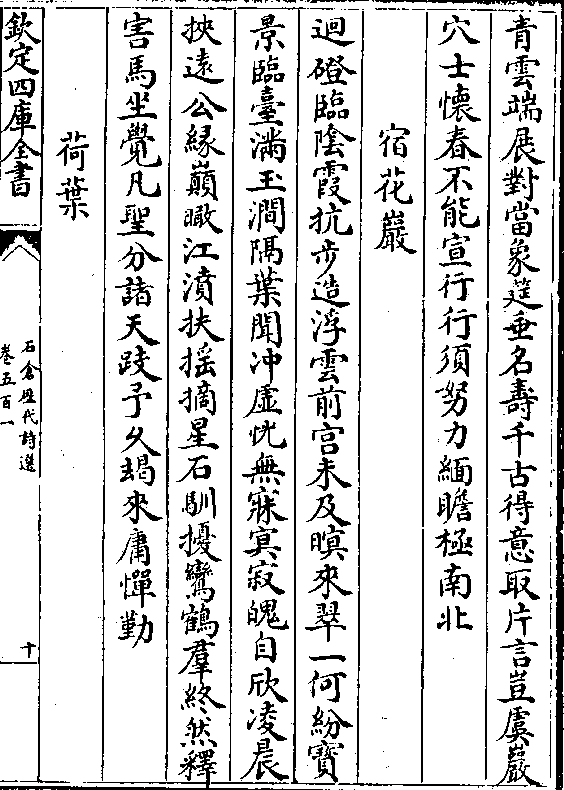 青雲端展對當象筵垂名壽千古得意取片言豈虞巖
穴士懷春不能宣行行須努力緬瞻極南北
宿花巖
迴磴臨陰霞抗步造浮雲前宫未及暝來翠一何紛寶
景臨臺滿玉澗隔葉聞冲虚恍無寐冥寂魄自欣凌晨
挾遠公緣巔瞰江濆扶揺摘星石馴擾鸞鶴羣終然釋
害馬坐覺凡聖分諸天跂予久朅來庸憚勤
荷葉
欽定四庫全書
石倉歴代詩選
卷五百一
十